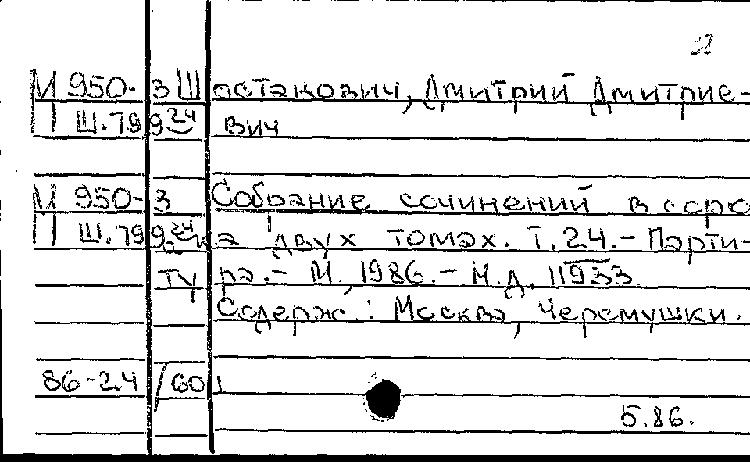 М 950-3 Шостакович, Дмитрий Дмитрие-
П Ш.799 24 вич
М 950-3 Собрание сочинений в соро
П Ш.799 24 ка двух томах. Т.24.- Парти-
ту ра.- М., 1986.- Н.д. 11933
Содерж.: Москва, Черемушки.
86-24/601
5.86.